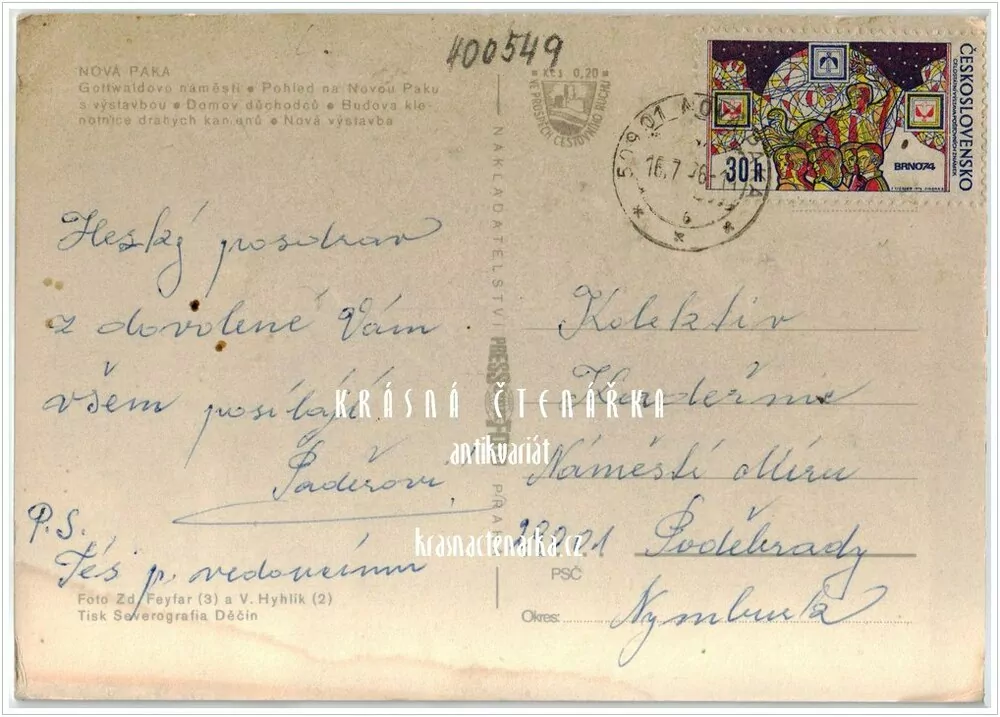 400549
NOVÁ PAKA
Gottwaldovo náměstí • Pohled na Novou Paku
s výstavbou • Domov důchodců • Budova kle-
notnice drahých kamenů • Nová výstavba
Kčs 0,20
VE PROSPĚCH CESTOVNÍHO RUCHU
509 01 NOVÁ PAKA
16.7.
ČESKOSLOVENSKO
CELOSTÁTNÍ VÝSTAVA POŠTOVNÍCH ZNÁMEK
BRNO 74
30 h
Hezký pozdrav
z dovolené Vám
všem posílají
Paděrovi
P.S.
Též p. vedoucímu
Foto Zd. Feyfar (3) a V. Hyhlík (2)
Tisk Severografia Děčín
NAKLADATELSTVÍ PRESSFOTO PRAHA
Kolektiv
Kadeřnic
Náměstí Míru
29001 Poděbrady
PSČ
Okres: Nymburk
KRÁSNÁ ČTENÁŘKA
antikvariát
krasnactenarka.cz